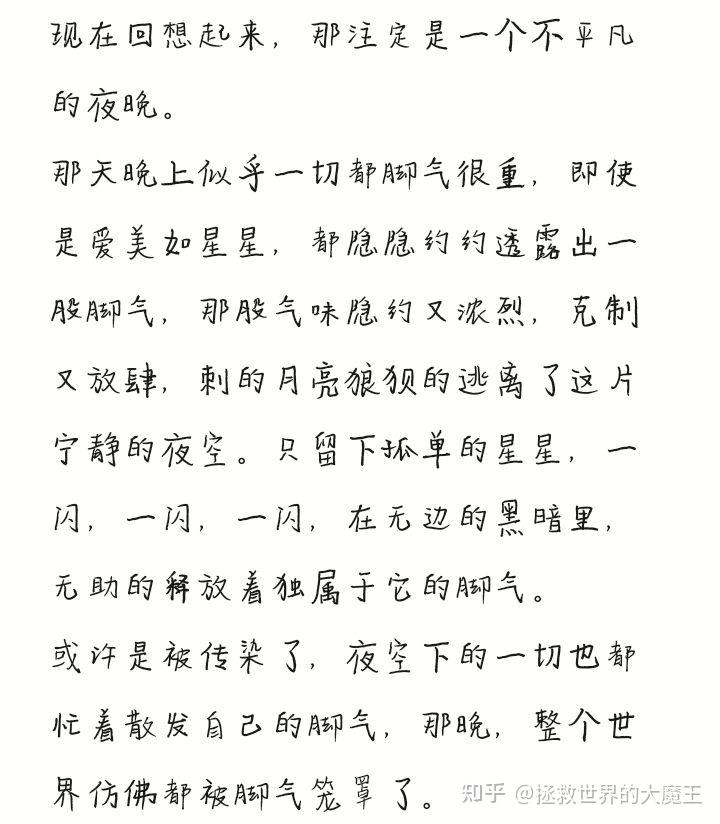 现在回想起来，那注定是一个不平凡
的夜晚。
那天晚上似乎一切都脚气很重，即使
是爱美如星星，都隐隐约约透露出一
股脚气，那股气味隐约又浓烈，克制
又放肆，刺的月亮狼狈的逃离了这片
宁静的夜空。只留下孤单的星星，一
闪，一闪，一闪，在无边的黑暗里，
无助的释放着独属于它的脚气。
或许是被传染了，夜空下的一切也都
忙着散发自己的脚气，那晚，整个世
界仿佛都被脚气笼罩了。
知乎 @拯救世界的大魔王